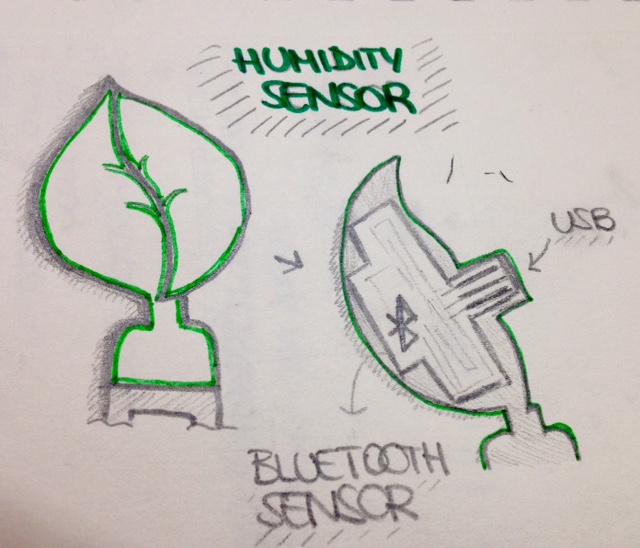 HUMIDITY
SENSOR
USB
BLUETOOTH
SENSOR